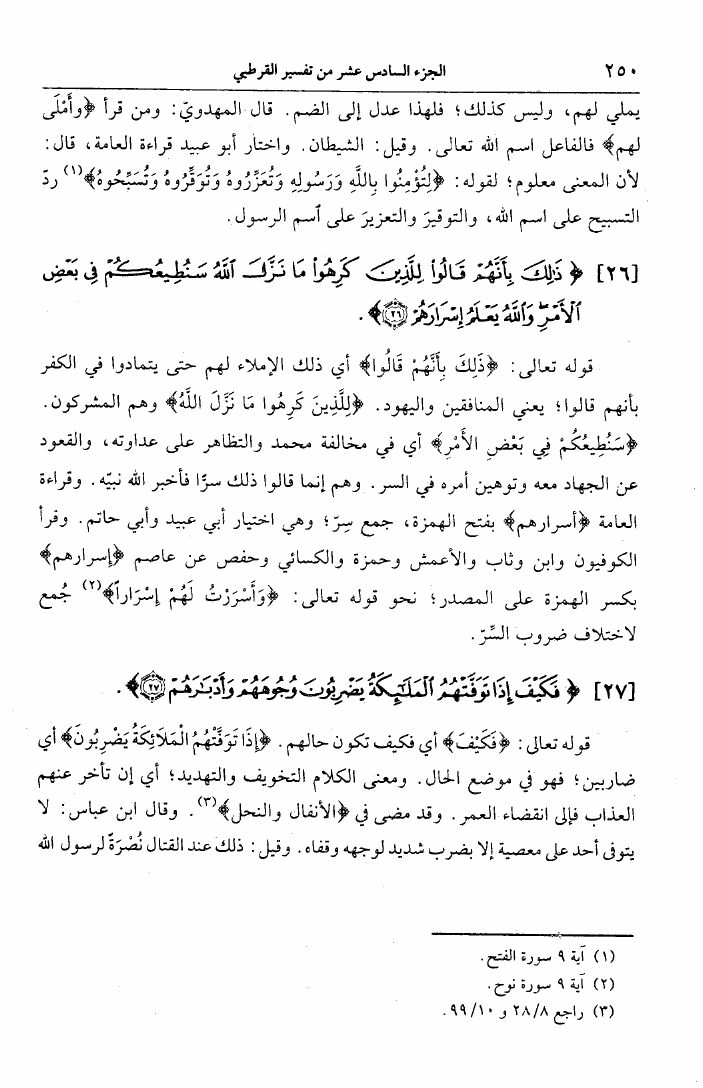 ٢٥٠ الجزء السادس عشر من تفسير القرطبي
يملي لهم، وليس كذلك؛ فلهذا عدل إلى الضم. قال المهدويّ: ومن قرأ ﴿وأَمْلَى
لهم﴾ فالفاعل اسم الله تعالى. وقيل: الشيطان. واختار أبو عبيد قراءة العامة، قال:
لأن المعنى معلوم؛ لقوله: ﴿لِتُؤْمِنُوا بِاللَّهِ وَرَسُولِهِ وَتُعَزِّرُوهُ وَتُوَقِّرُوهُ وَتُسَبِّحُوهُ﴾(١) ردّ
التسبيح على اسم الله، والتوقيرَ والتعزيرَ على آسم الرسول.
[٢٦] ﴿ ذَٰلِكَ بِأَنَّهُمْ قَالُواْ لِلَّذِينَ كَرِهُواْ مَا نَزَّلَ ٱللَّهُ سَنُطِيعُكُمْ فِى بَعْضِ
ٱلْأَمْرِ وَٱللَّهُ يَعْلَمُ إِسْرَارَهُمْ ٢٦﴾.
قوله تعالى: ﴿ذَلِكَ بِأَنَّهُمْ قَالُوا﴾ أي ذلك الإملاء لهم حتى يتمادوا في الكفر
بأنهم قالوا؛ يعني المنافقين واليهود. ﴿لِلَّذِينَ كَرِهُوا مَا نَزَّلَ اللَّهُ﴾ وهم المشركون.
﴿سَنُطِيعُكُمْ فِي بَعْضِ الأَمْرِ﴾ أي في مخالفة محمد والتظاهر على عداوته، والقعود
عن الجهاد معه وتوهين أمره في السر. وهم إنما قالوا ذلك سرًّا فأخبر الله نبيّه. وقراءة
العامة ﴿أسرارهم﴾ بفتح الهمزة، جمع سِرّ؛ وهي اختيار أبي عبيد وأبي حاتم. وقرأ
الكوفيون وابن وثاب والأعمش وحمزة والكسائي وحفص عن عاصم ﴿إسرارهم﴾
بكسر الهمزة على المصدر؛ نحو قوله تعالى: ﴿وَأَسْرَرْتُ لَهُمْ إِسْرَاراً﴾(٢) جُمع
لاختلاف ضروب السِّرّ.
[٢٧] ﴿ فَكَيْفَ إِذَا تَوَفَّتْهُمُ ٱلْمَلَٰٓئِكَةُ يَضْرِبُونَ وُجُوهَهُمْ وَأَدْبَٰرَهُمْ ٢٧﴾.
قوله تعالى: ﴿فَكَيْفَ﴾ أي فكيف تكون حالهم. ﴿إِذَا تَوَفَّتْهُمُ الْمَلَائِكَةُ يَضْرِبُونَ﴾ أي
ضاربين؛ فهو في موضع الحال. ومعنى الكلام التخويف والتهديد؛ أي إن تأخر عنهم
العذاب فإلى انقضاء العمر. وقد مضى في ﴿الأنفال والنحل﴾(٣). وقال ابن عباس: لا
يتوفى أحد على معصية إلا بضرب شديد لوجهه وقفاه. وقيل: ذلك عند القتال نُصْرَةً لرسول الله
(١) آية ٩ سورة الفتح.
(٢) آية ٩ سورة نوح.
(٣) راجع ٢٨/٨ و ٩٩/١٠.